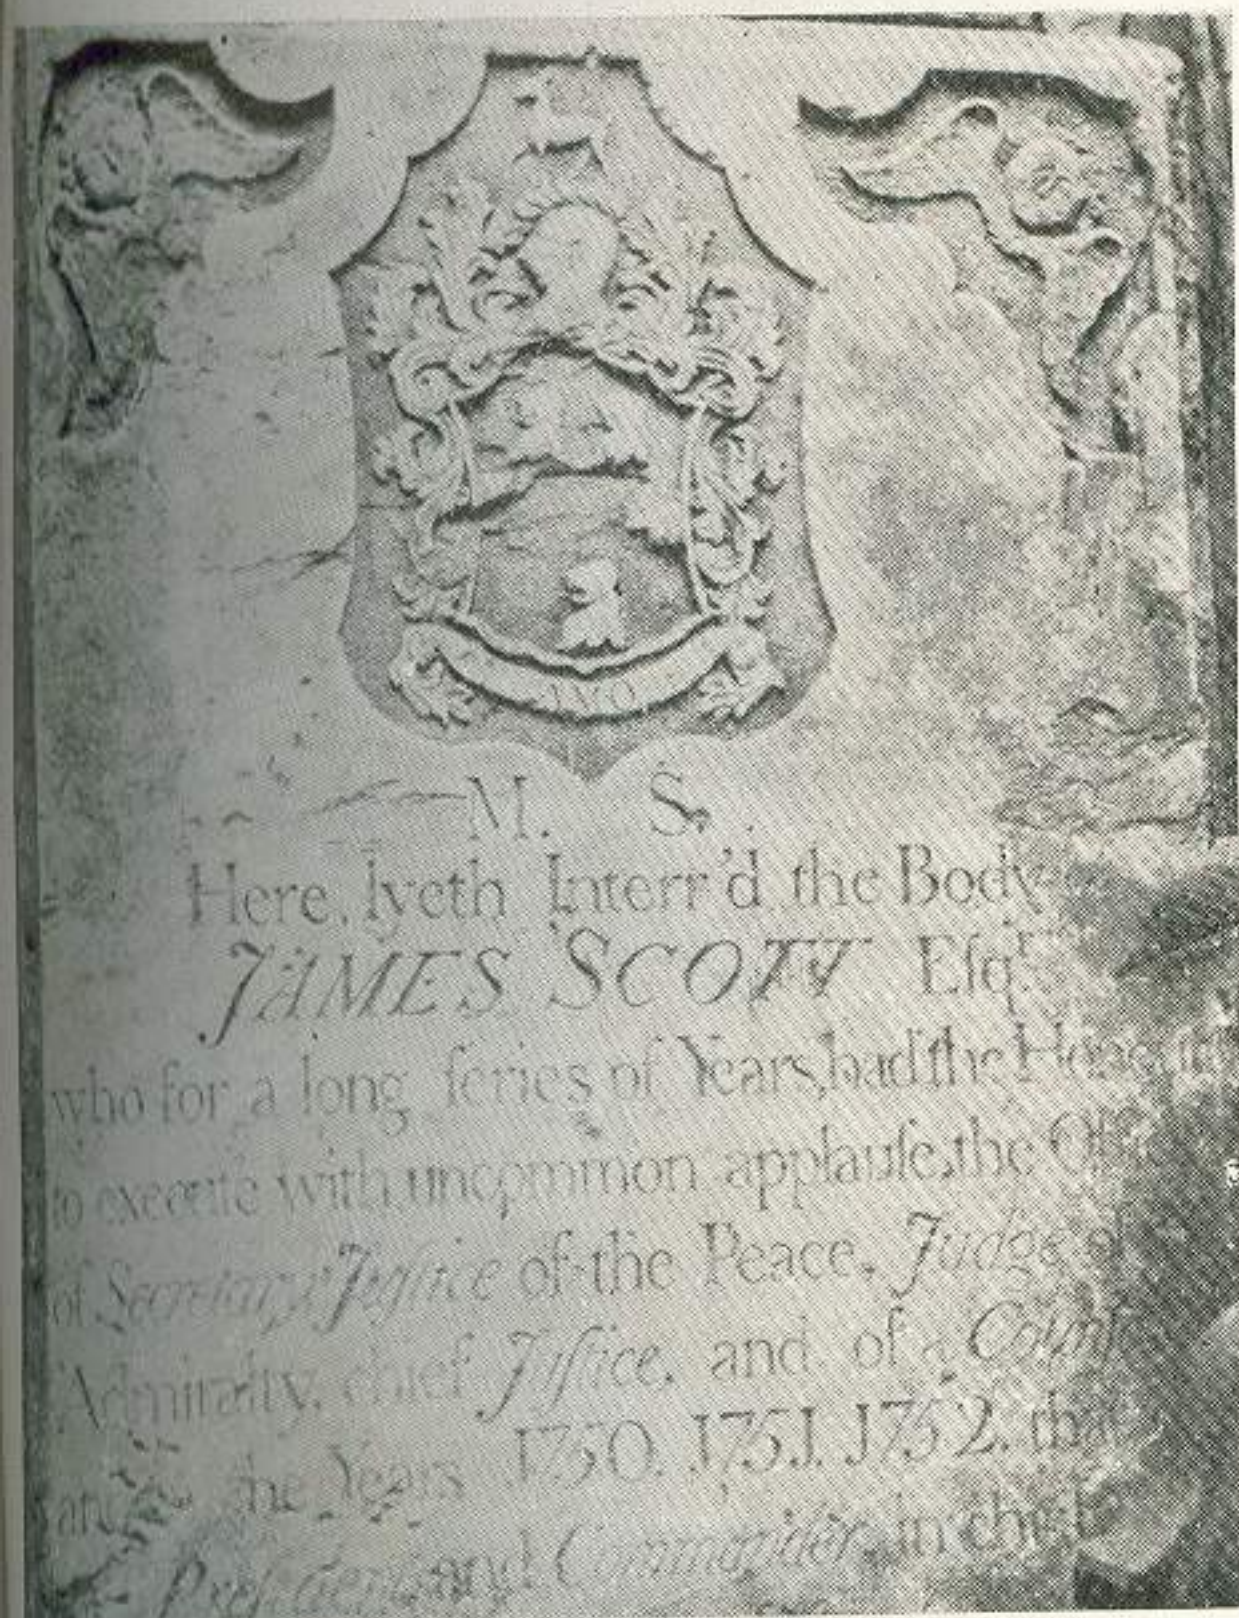 AMO
M. S.
Here lyeth Interr'd the Body
JAMES SCOTT Eſqr
who for a long ſeries of Years, had the
to execute with uncommon applauſe, the
of Secretary Juſtice of the Peace, Judge of
Admiralty, chief Juſtice, and of a
and the Years 1750. 1751. 1752. that
Preſident and Commander in chief